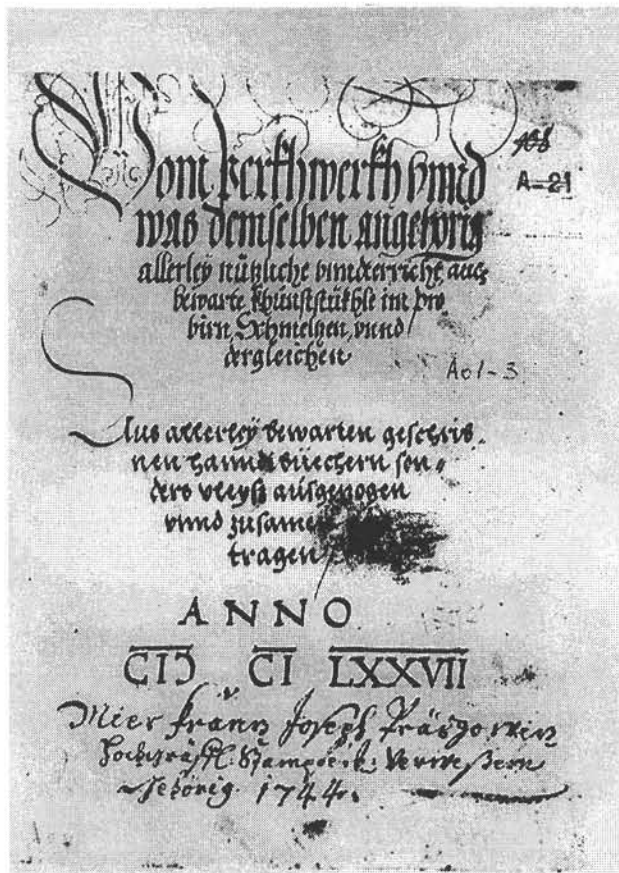 Vom Perkhwerkh vnnd
was demselben angehörig
allerley nützliche vnnderricht, auch
bewarte Khunststükhle im pro
birn, Schmeltzen, vnnd
dergleichen
108
A-21
Ao1-3
Aus allerley bewarten geschrib,
nen hannd büechern son,
ders vleyß ausgezogen
vnnd zusamen
tragen
ANNO
CIↃ CI LXXVII
Mier Frantz Joseph
Verweßern
gehörig 1744.